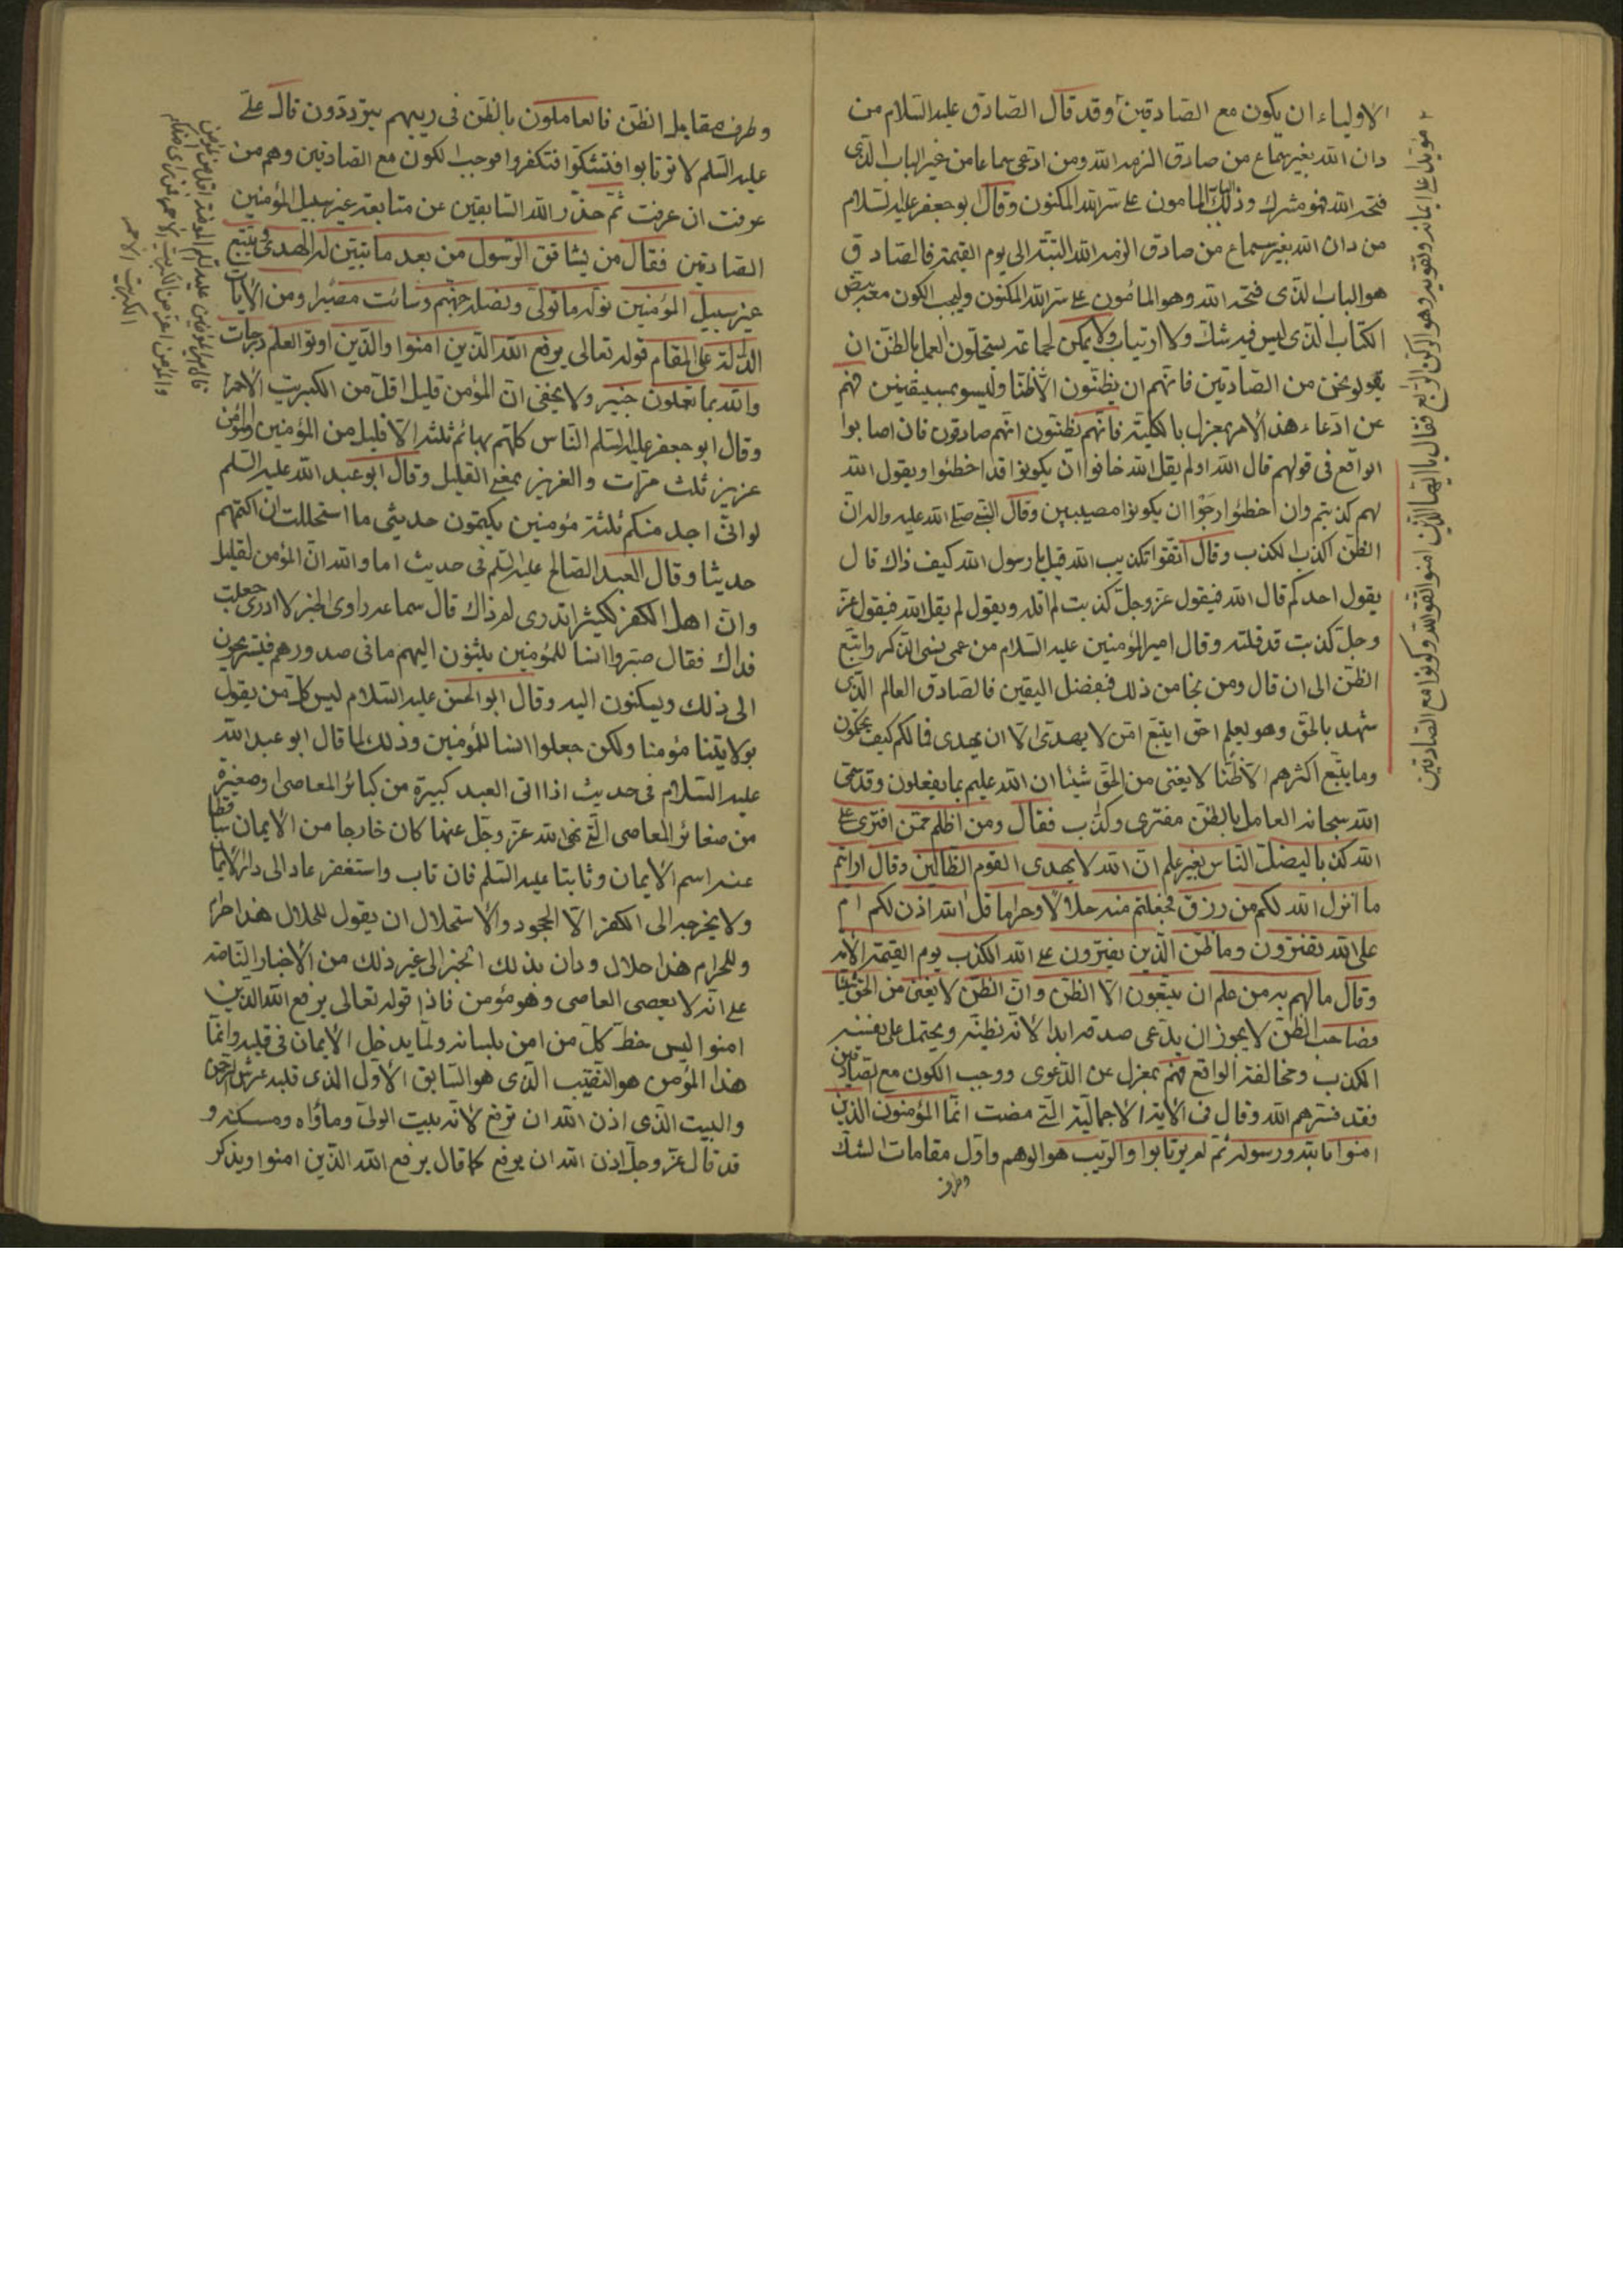 الاولیاء ان یکون مع الصّادقین وقد قال الصّادق علیه السّلام من
دان الله بغیر سماع من صادق الزمه الله ومن ادّعی سماعا من غیر الباب الّذی
فتحه الله فهو مشرك وذلك الباب المامون علی سرّ الله المکنون وقال ابو جعفر علیه السّلام
من دان الله بغیر سماع من صادق الزمه الله البتّة الی یوم القیمة فالصّادق
هو الباب الّذی فتحه الله وهو المامون علی سرّ الله المکنون ویجب الکون معه بنصّ
الکتاب الّذی لیس فیه شكّ ولا ارتیاب ولا یمکن لجماعة یستحلّون العمل بالظنّ ان
یقولوا نحن من الصّادقین فانّهم ان یظنّون الّا ظنّا ولیسو بمستیقنین فهم
عن ادّعاء هذا الامر بمعزل بالکلیّة فانّهم یظنّون انّهم صادقون فان اصابوا
الواقع فی قولهم قال الله او لم یقل الله خافوا ان یکونوا قد اخطئوا ویقول الله
لهم کذبتم وان اخطئوا رجوا ان یکونوا مصیبین وقال النّبی صلّی الله علیه واله انّ
الظنّ اکذب الکذب وقال اتّقوا تکذیب الله قیل یا رسول الله کیف ذاك قال
یقول احدکم قال الله فیقول عزّ وجلّ کذبت لم اقله ویقول لم یقل الله فیقول عزّ
وجلّ کذبت قد قلته وقال امیر المؤمنین علیه السّلام من عمی نسی الذّکر واتّبع
الظنّ الی ان قال ومن نجا من ذلك فبفضل الیقین فالصّادق العالم الّذی
شهد بالحقّ وهو یعلم احقّ ان یتّبع امّن لا یهدّی الّا ان یهدی فما لکم کیف تحکمون
وما یتّبع اکثرهم الّا ظنّا لا یغنی من الحقّ شیئا ان الله علیم بما یفعلون وقد سمّی
الله سبحانه العامل بالظنّ مفتری وکذّب فقال ومن اظلم ممّن افتری علی
الله کذبا لیضلّ النّاس بغیر علم انّ الله لا یهدی القوم الظّالمین وقال ارایتم
ما انزل الله لکم من رزق فجعلتم منه حلالًا وحراما قل الله اذن لکم ام
علی الله تفترون وما ظنّ الّذین یفترون علی الله الکذب یوم القیمة الآیه
وقال ما لهم به من علم ان یتّبعون الّا الظنّ وانّ الظنّ لا یغنی من الحقّ شیئا
فصاحب الظنّ لا یجوز ان یدّعی صدقه ابدا لانّه یظنّه ویحتمل علی نفسه
الکذب ومخالفة الواقع فهم بمعزل عن الدّعوی ووجب الکون مع الصّادقین
فقد فسّرهم الله وقال فی الآیة الاجمالیّة الّتی مضت انّما المؤمنون الّذین
امنوا بالله ورسوله ثمّ لم یرتابوا والرّیب هو الوهم واوّل مقامات الشكّ
وطرف
٢ فقال یا ایّها الّذین امنوا اتّقوا الله وکونوا مع الصّادقین
وطرف مقابل الظنّ فالعاملون بالظنّ فی ریبهم یتردّدون قال علیّ
علیه السّلم لا ترتابوا فتشکّوا فتکفروا فوجب الکون مع الصّادقین وهم من
عرفت ان عرفت ثمّ حذّر الله السّابقین عن متابعة غیر سبیل المؤمنین
الصّادقین فقال من یشاقق الرّسول من بعد ما تبیّن له الهدی ویتّبع
غیر سبیل المؤمنین نولّه ما تولّی ونصله جهنّم وسائت مصیرا ومن الآیات
الدّالّة علی المقام قوله تعالی یرفع الله الّذین امنوا والّذین اوتوا العلم درجات
والله بما تعملون خبیر ولا یخفی انّ المؤمن قلیل اقلّ من الکبریت الاحمر
وقال ابو جعفر علیه السّلم النّاس کلّهم بهائم ثلثا الّا قلیل من المؤمنین والمؤمن
عزیز ثلث مرّات والعزیز بمعنی القلیل وقال ابو عبد الله علیه السّلم
لو انّی اجد منکم ثلثة مؤمنین یکتمون حدیثی ما استحللت ان اکتمهم
حدیثا وقال العبد الصّالح علیه السّلم فی حدیث اما والله انّ المؤمن لقلیل
وانّ اهل الکفر لکثیر اتدری لم ذاك قال سماعة راوی الخبر لا ادری جعلت
فداك فقال صیّروا انسا للمؤمنین یبثّون الیهم ما فی صدورهم فیستریحون
الی ذلك ویسکنون الیه وقال ابو الحسن علیه السّلام لیس کلّ من یقول
بولایتنا مؤمنا ولکن جعلوا انسا للمؤمنین وذلك لما قال ابو عبد الله
علیه السّلام فی حدیث اذا اتی العبد کبیرة من کبائر المعاصی او صغیرة
من صغائر المعاصی الّتی نهی الله عزّ وجلّ عنها کان خارجا من الایمان ساقطا
عنه اسم الایمان وثابتا علیه السّلم فان تاب واستغفر عاد الی دار الایمان
ولا یخرجه الی الکفر الّا الجحود والاستحلال ان یقول للحلال هذا حرام
وللحرام هذا حلال ودان بذلك الخبر الی غیر ذلك من الاخبار النّاصّة
علی انّه لا یعصی العاصی وهو مؤمن فاذا قوله تعالی یرفع الله الّذین
امنوا لیس حظّ کلّ من امن بلسانه ولمّا یدخل الایمان فی قلبه وانّما
هذا المؤمن هو النّقیب الّذی هو السّابق الاوّل الّذی قلبه عرش الرّحمن
والبیت الّذی اذن الله ان ترفع لانّه بیت الولیّ وماواه ومسکنه و
قد قال عزّ وجلّ اذن الله ان یرفع کما قال یرفع الله الّذین امنوا ویذکر
والمؤمن اعزّ من الکبریت الاحمر فمن رای منکم
الکبریت الاحمر